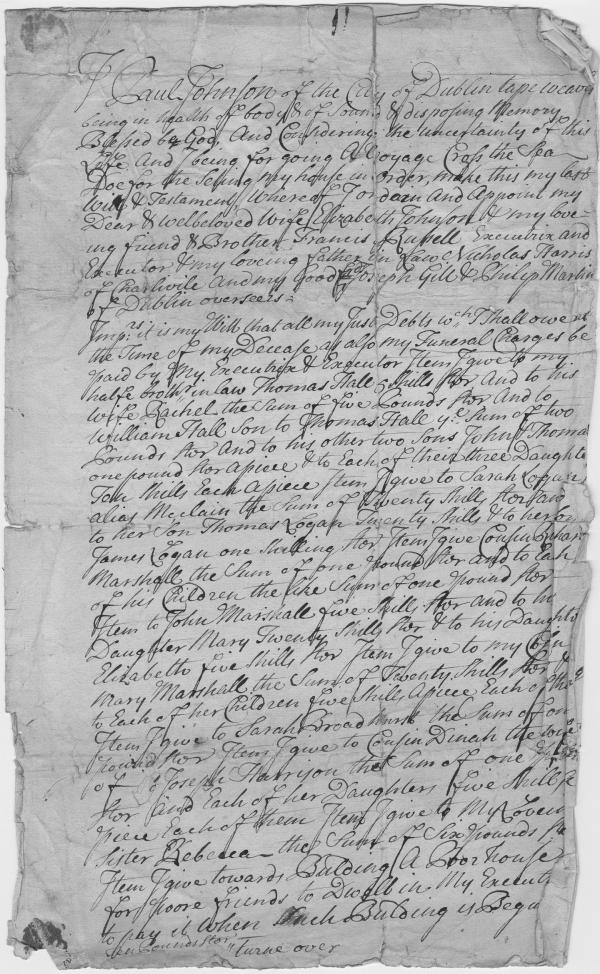 I Paul Johnson of the City of Dublin tape weaver
being in health of body & of Sound & disposing Memory
Blessed be God, And Considering the uncertainty of this
Life And I being for going A Voyage Cross the Sea
Doe for the Setting my house in Order, make this my last
Will & Testament Whereof I ordean And Appoint my
Dear & welbeloved Wife Elizabeth Johnson & my love-
ing friend & Brother Francis Russell Executrix and
Executor & my loveing father in Law Nicholas Harris
of Charlvile And my Good Joseph Gill & Philip Martin
of Dublin overseers
Impr.s it is my Will that all my Just Debts wch I shall owe at
the time of my Decease as also my Funeral Charges be
paid by My Executrix & Executor Item I give to my
halfe brothr in law Thomas Hall 5 shills Ster And to his
Wife Rachel the Sum of five Pounds Ster And to
William Hall Son to Thomas Hall ye Sum of two
Pounds Ster And to his other two Sons John & Thomas
one pound Ster Apiece & to Each of their three Daughte
Ten Shills Each Apiece Item I give to Sarah
alias Mcclain the Sum of Twenty Shills Ster and
to her Son Thomas Logan Twenty Shills & to her
James Logan one Shilling Ster Item I give Cousin
Marshall the Sum of one Pound Ster and to Each
of his Children the like Sum of one Pound Ster
Item to John Marshall five Shills Ster and to his
Daughter Mary Twenty Shills Ster & to his Daught
Elizabeth five Shills Ster Item I give to my
Mary Marshall the Sum of Twenty Shills Ster &
to Each of her Children five Shills Apiece Each of
Item I give to Sarah Broadhurst the Sum of on
pound Ster Item I give to Cousin Dinah the wife
of Joseph Harrison the Sum of one
Ster And Each of her Daughters five Shills
piece Each of them Item I give to My Lovein
Sister Rebecca the Sum of Six pounds
Item I give towards Building A Poor house
for poore friends to Dwell in My Execut
to pay it When Such Building is Begu
Ten Pounds Ster
turne over